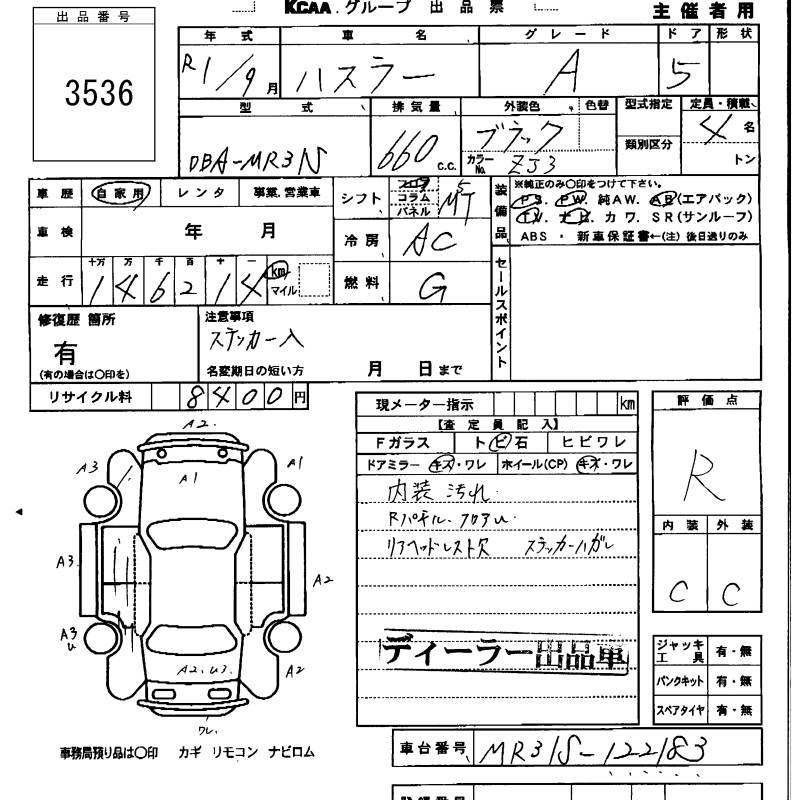 出品番号
3536
KCAA.グループ 出品票
主催者用
年式 車名 グレード ドア 形状
R1/9月 ハスラー A 5
型式 排気量 外装色 色替 型式指定 定員・積載
DBA-MR31S 660 C.C. ブラック カラーNo. ZJ3 類別区分 4名 トン
車歴 自家用 レンタ 事業.営業車 シフト フロア コラム パネル 5 MT
装備品 ※純正のみ○印をつけて下さい。
PS. PW. 純AW. AB(エアバック)
TV. ナビ. カワ. SR(サンルーフ)
ABS ・ 新車保証書←(注) 後日送りのみ
車検 年 月 冷房 AC
走行 十万 万 千 百 十 一
146214 km マイル 燃料 G
セールスポイント
修復歴 箇所
有
(有の場合は○印を)
注意事項
ステッカー入
名変期日の短い方 月 日まで
リサイクル料 8400円
現メーター指示 km
【査定員記入】
Fガラス ト ビ 石 ヒビワレ
ドアミラー キズ・ワレ ホイール(CP) キズ・ワレ
内装 汚れ.
Rパネル. フロアU
リアヘッドレスト欠 ステッカーハガレ
ディーラー出品車
評価点
R
内装 外装
C C
A2.
A3 A1 A1
A3 A2
A3 U A2.U3. A2
ワレ.
ジャッキ工具 有・無
パンクキット 有・無
スペアタイヤ 有・無
事務局預り品は○印 カギ リモコン ナビロム
車台番号 MR31S-122183